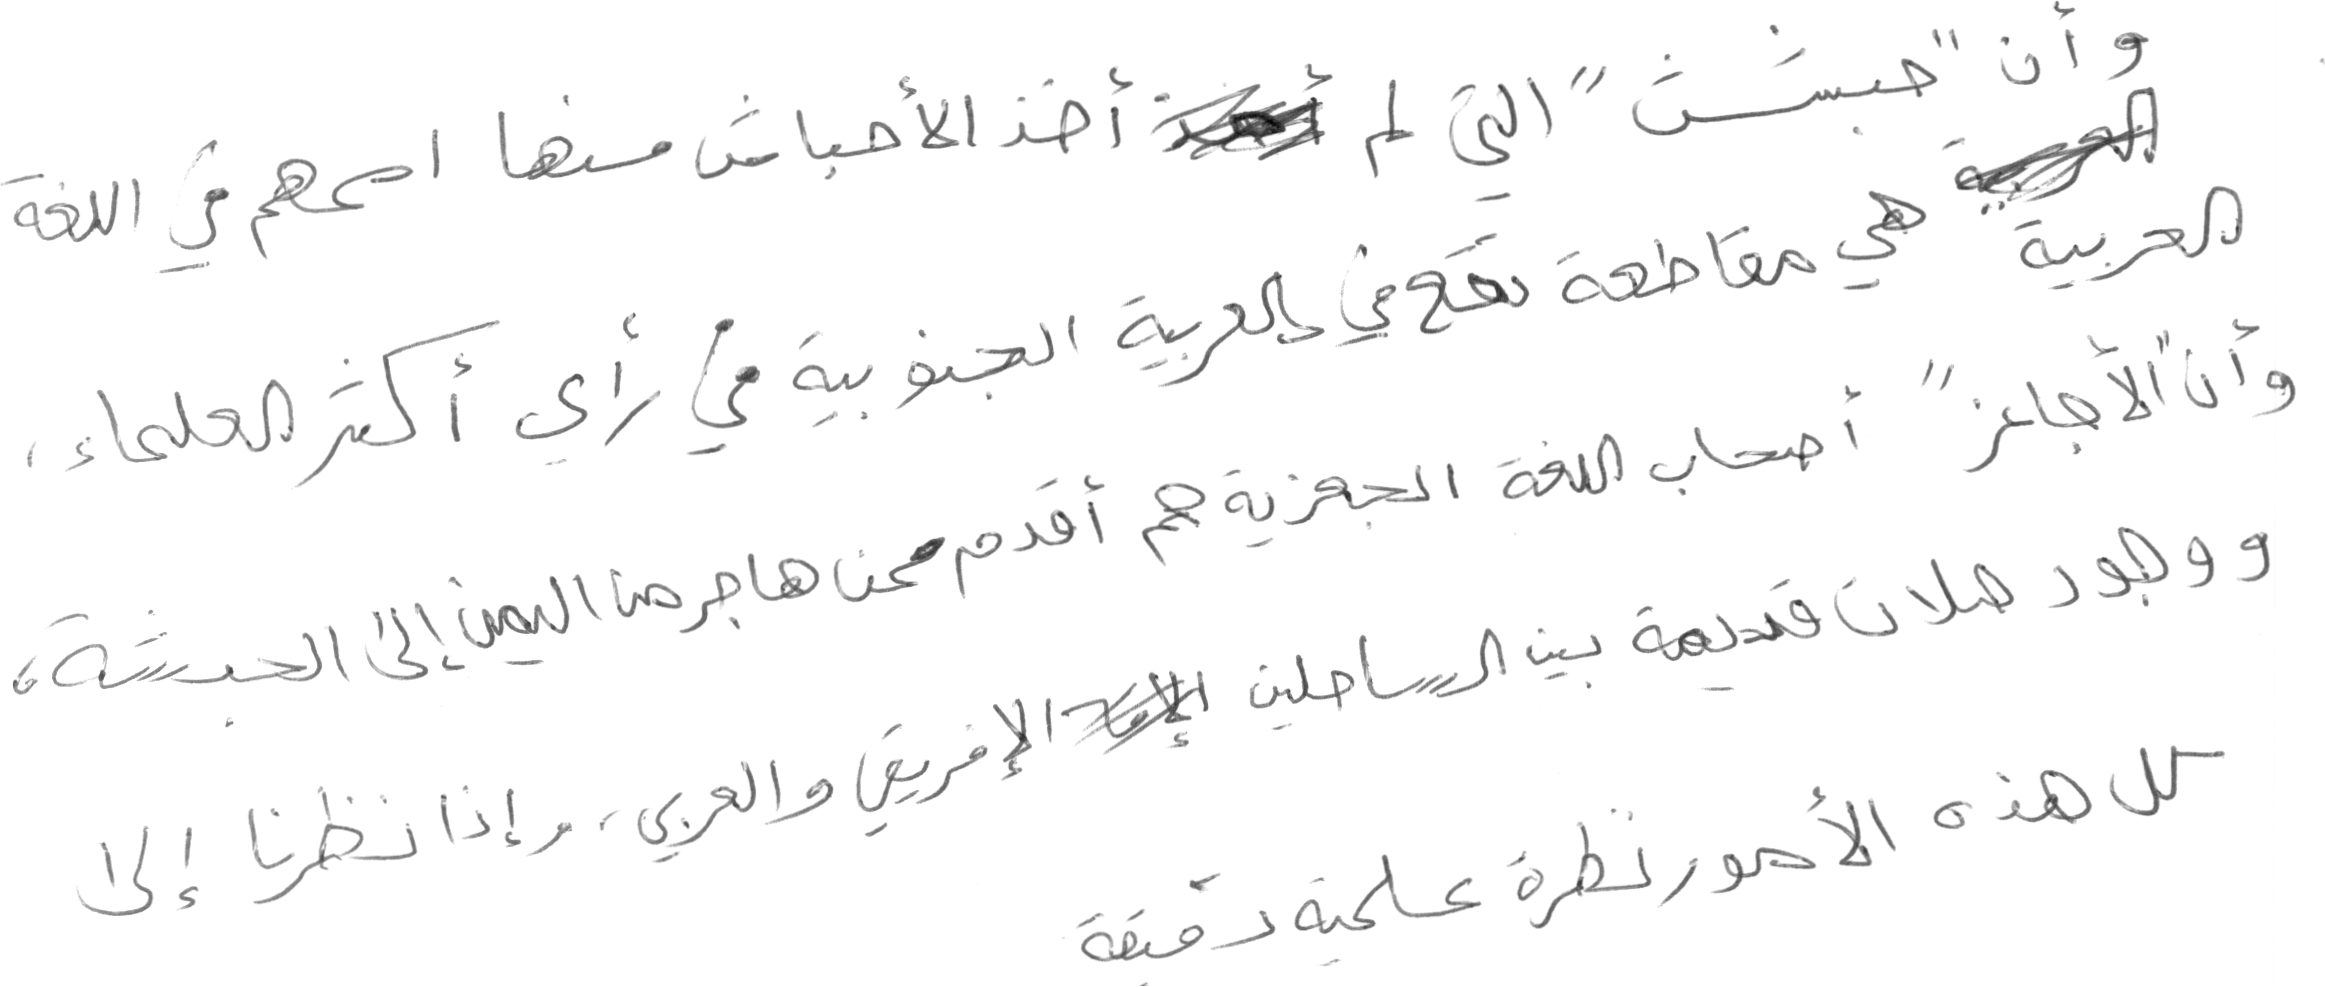 وأن "حبشت" التي لم أخذ الأحباش منها اسمهم في اللغة
العربية هي مقاطعة تقع في العربية الجنوبية في رأي أكثر العلماء،
وأن "الأجاعز" أصحاب اللغة الجعزية هم أقدم من هاجر من اليمن إلى الحبشة،
ووجود صلات قديمة بين الساحلين الإفريقي والعربي، وإذا نظرنا إلى
كل هذه الأمور نظرة علمية دقيقة